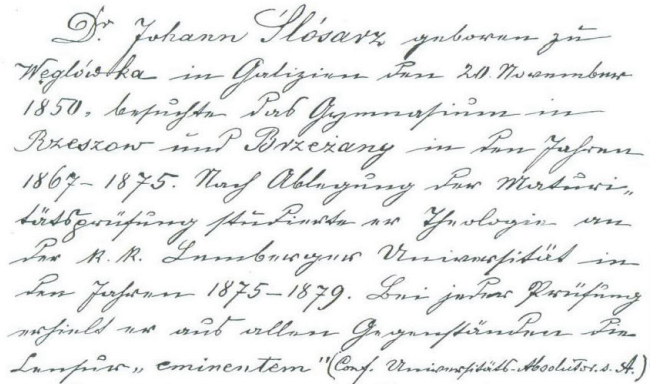 Dr Johann Ślósarz geboren zu
Węglówka in Galizien den 20 November
1850, besuchte das Gymnasium in
Rzeszow und Brzeżany in den Jahren
1867-1875. Nach Ablegung der Maturi„
tätsprüfung studierte er Theologie an
der k. k. Lemberger Universität in
den Jahren 1875-1879. Bei jeder Prüfung
erhielt er aus allen Gegenständen die
Censur „eminentem" (Conf. Universitäts-Absolutor. s. A.)